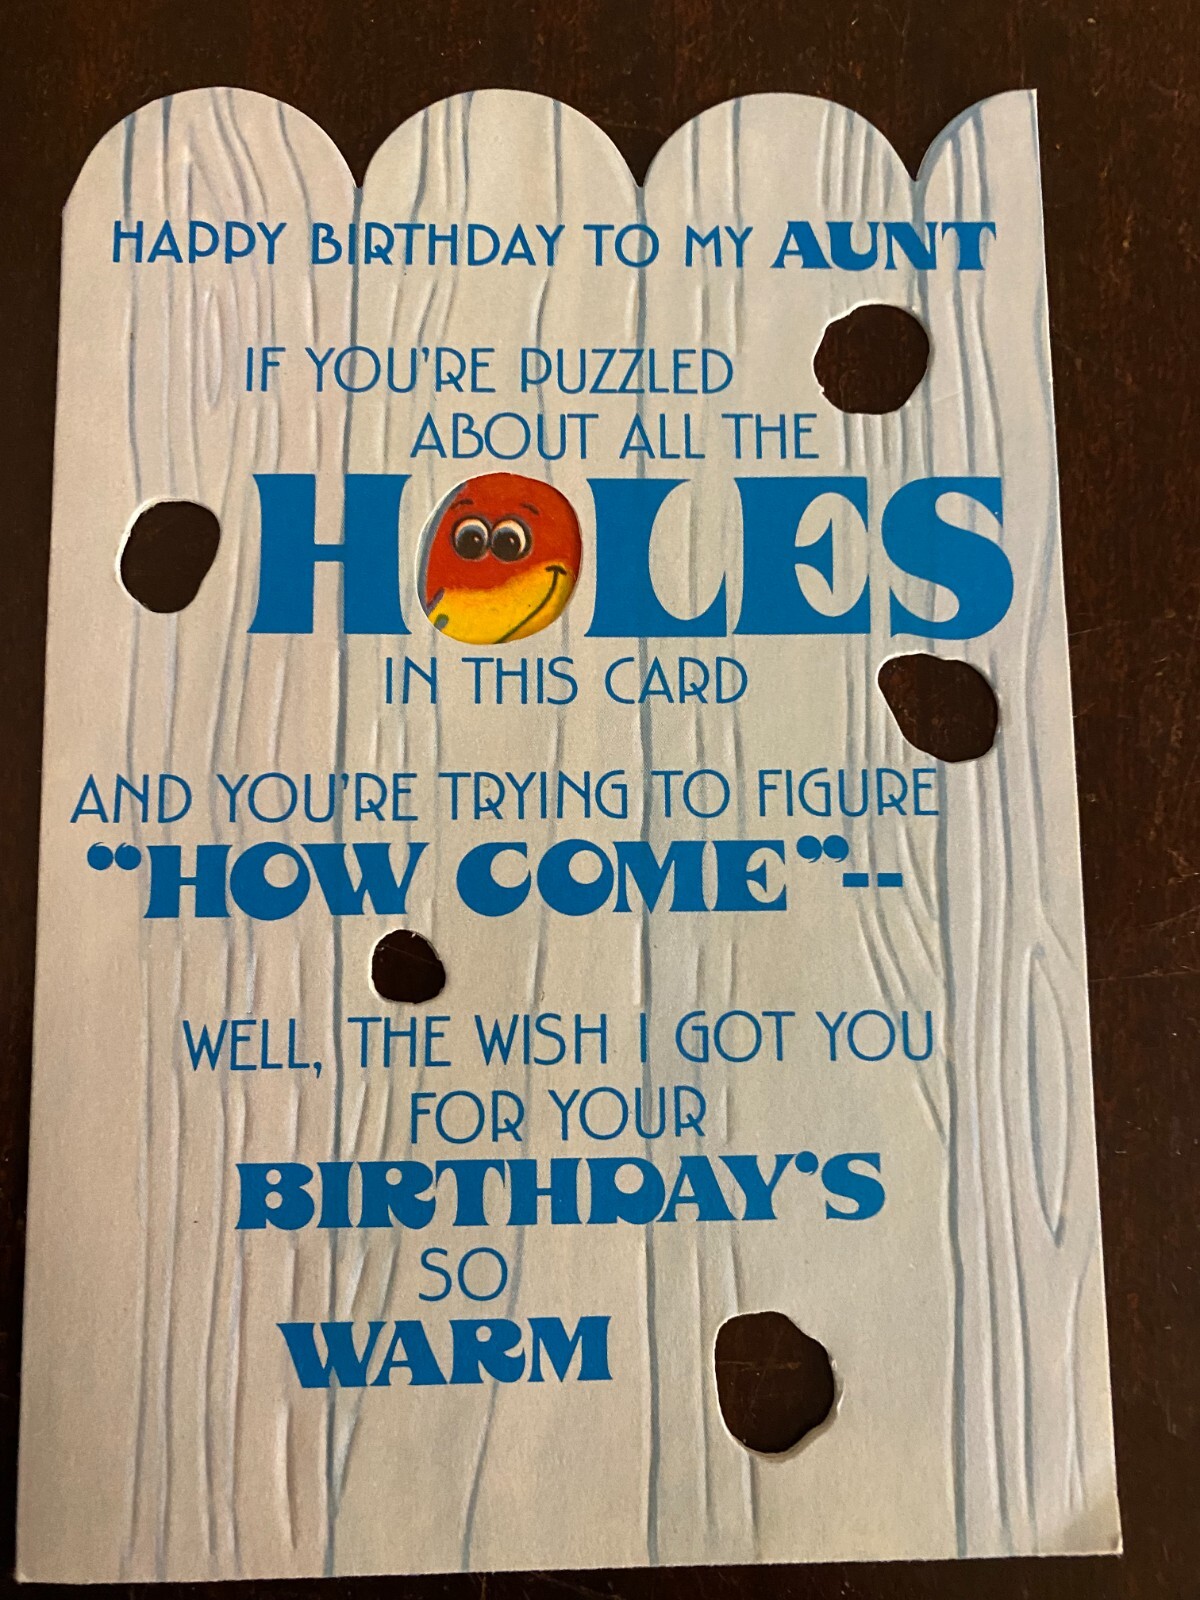 HAPPY BIRTHDAY TO MY AUNT
IF YOU'RE PUZZLED
ABOUT ALL THE
HOLES
IN THIS CARD
AND YOU'RE TRYING TO FIGURE
“HOW COME”--
WELL, THE WISH I GOT YOU
FOR YOUR
BIRTHDAY'S
SO
WARM